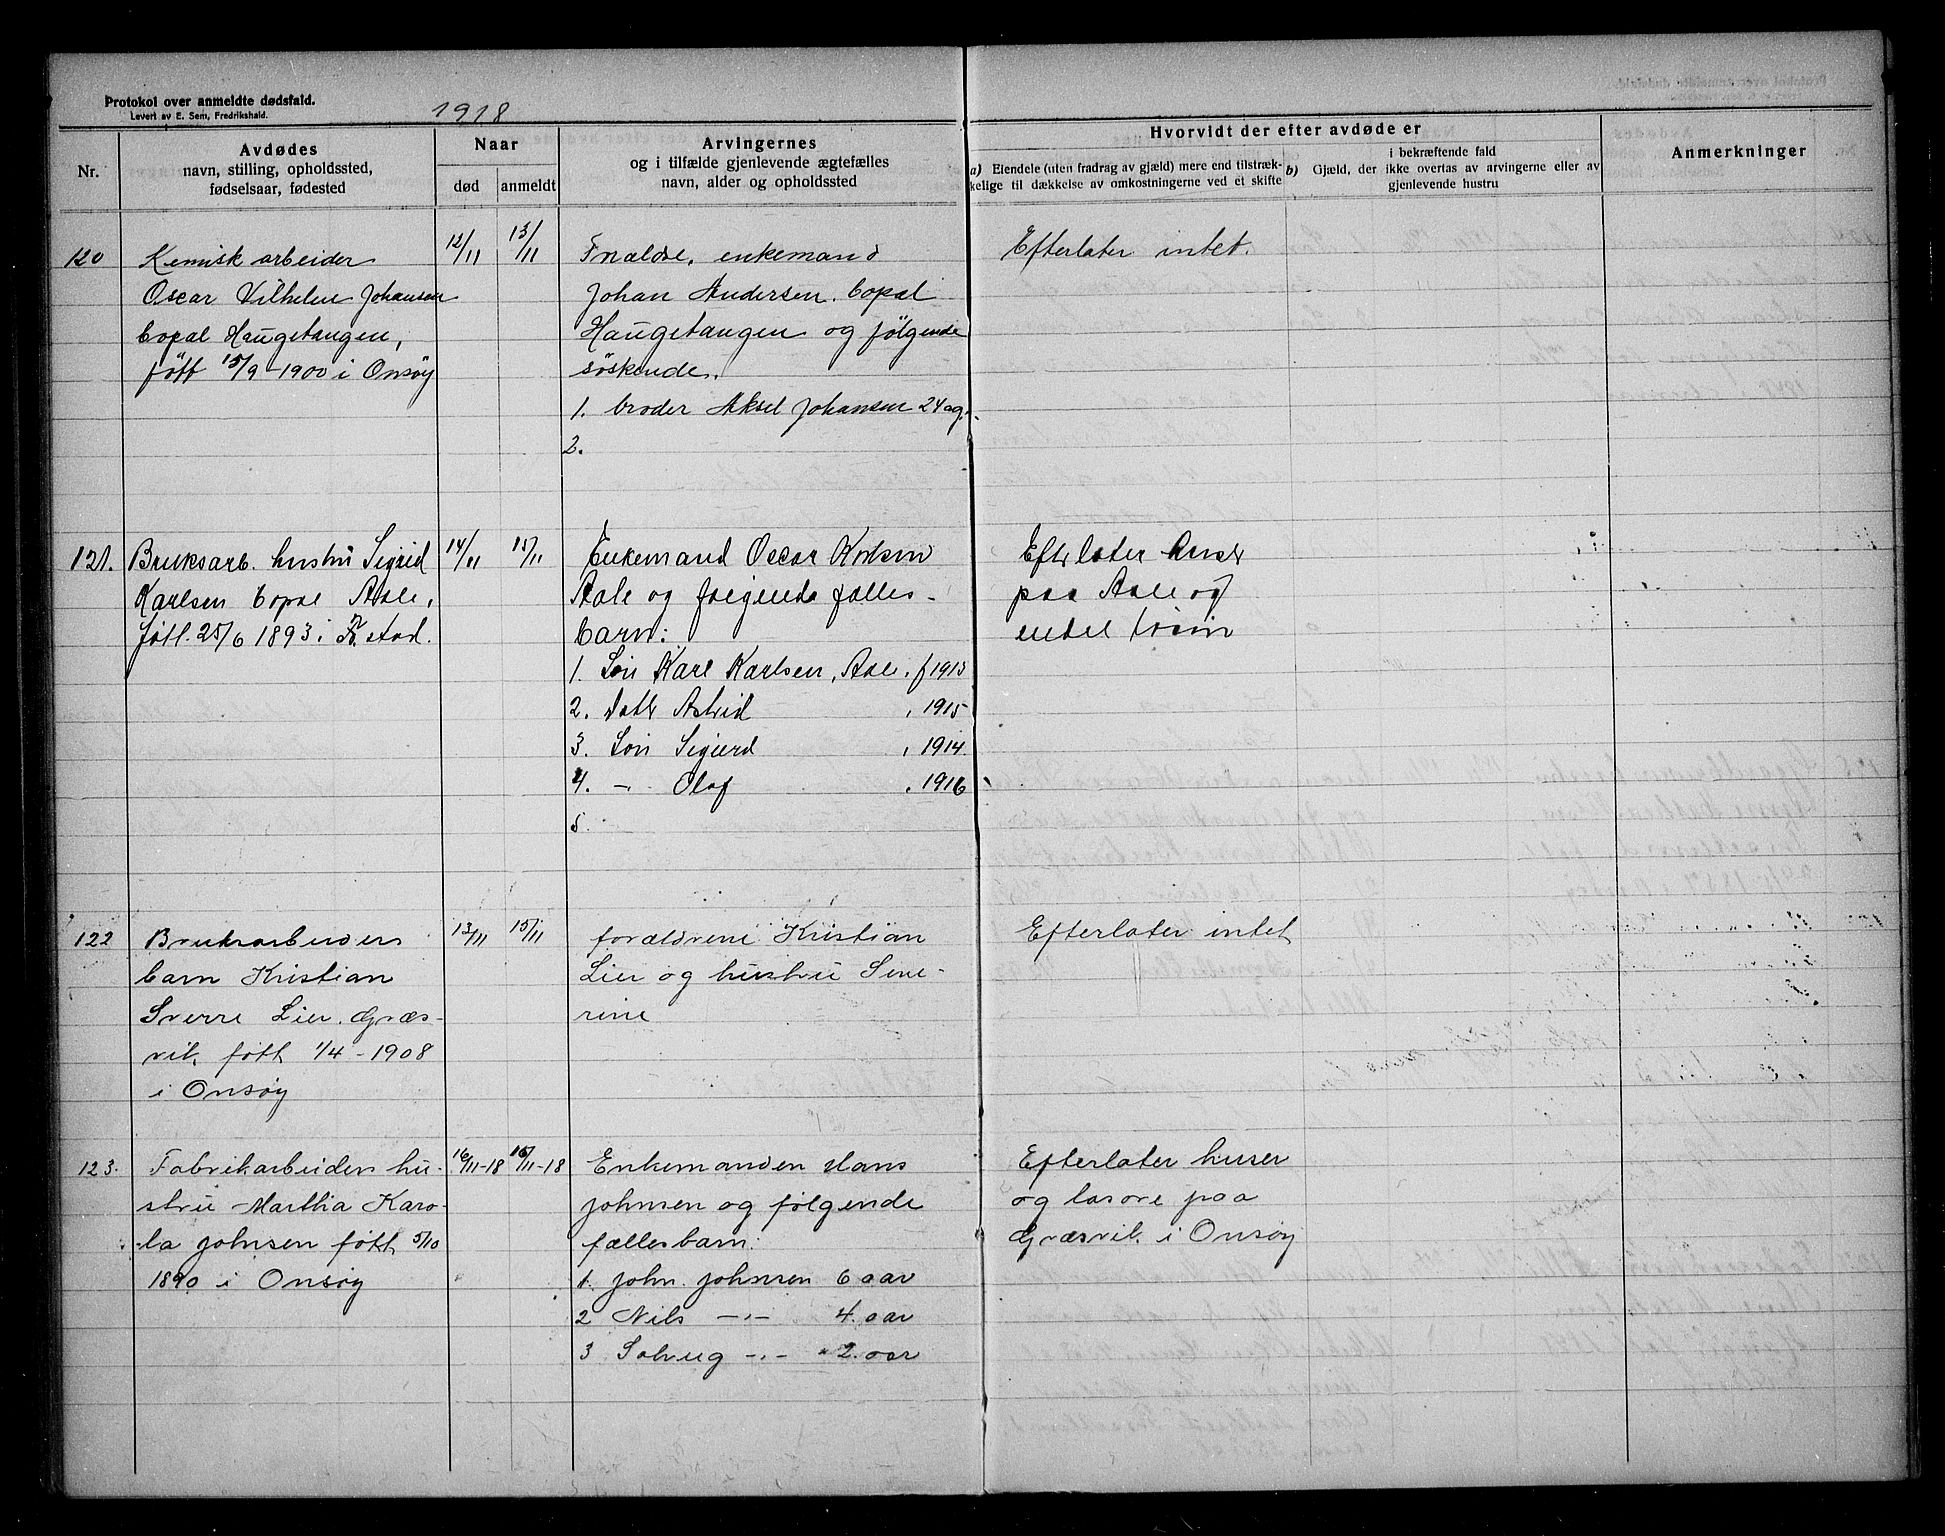 Protokol over anmeldte dødsfald.
Levert av E. Sem, Fredrikshald.
1918
Nr.
Avdødes
navn, stilling, opholdssted,
fødselsaar, fødested
Naar
død
anmeldt
Arvingernes
og i tilfælde gjenlevende ægtefælles
navn, alder og opholdssted
Hvorvidt der efter avdøde er
a) Eiendele (uten fradrag av gjæld) mere end tilstræk-
kelige til dækkelse av omkostningerne ved et skifte
b) Gjæld, der i bekræftende fald ikke overtas av arvingerne eller av
gjenlevende hustru
Anmerkninger
120
Kemisk arbeider
Oscar Vilhelm Johansen
Copal Haugetangen,
født 15/9-1900 i Onsøy
12/11
13/11
enkemand
Johan Andersen. Copal
Haugetangen og følgende
søskende.
1. broder Aksel Johansen 24 ag.
2.
Efterlater intet.
121.
Bruksarb. hustru Sigrid
Karlsen Copal Aale,
født 25/6 1893 i Fr.stad.
14/11
15/11
Enkemand Oscar Karlsen
Aale og følgende fælles-
barn:
1. Søn Karl Karlsen, Aale, f 1913
2. Dattr Astrid " 1915
3. Søn Sigurd " 1914
4. — Olaf " 1916
5.
Efterlater
paa Aale og
endel løsøre
122
Bruksarbeiders
barn Kristian
Sverre Lier. Græs-
vik født 1/4-1908
i Onsøy
13/11
15/11
forældrene Kristian
Lier og hustru Seve-
rine
Efterlater intet
123.
Fabrikarbeiders hu-
stru Martha Karo-
la Johnsen født 5/10
1890 i Onsøy
16/11-18
16/11-18
Enkemanden Hans
Johnsen og følgende
fællesbarn:
1. John Johnsen 6 aar
2 Nils —"— 4 aar
3 Solveig —"— 2 aar
Efterlater huser
og løsøre paa
Græsvik i Onsøy